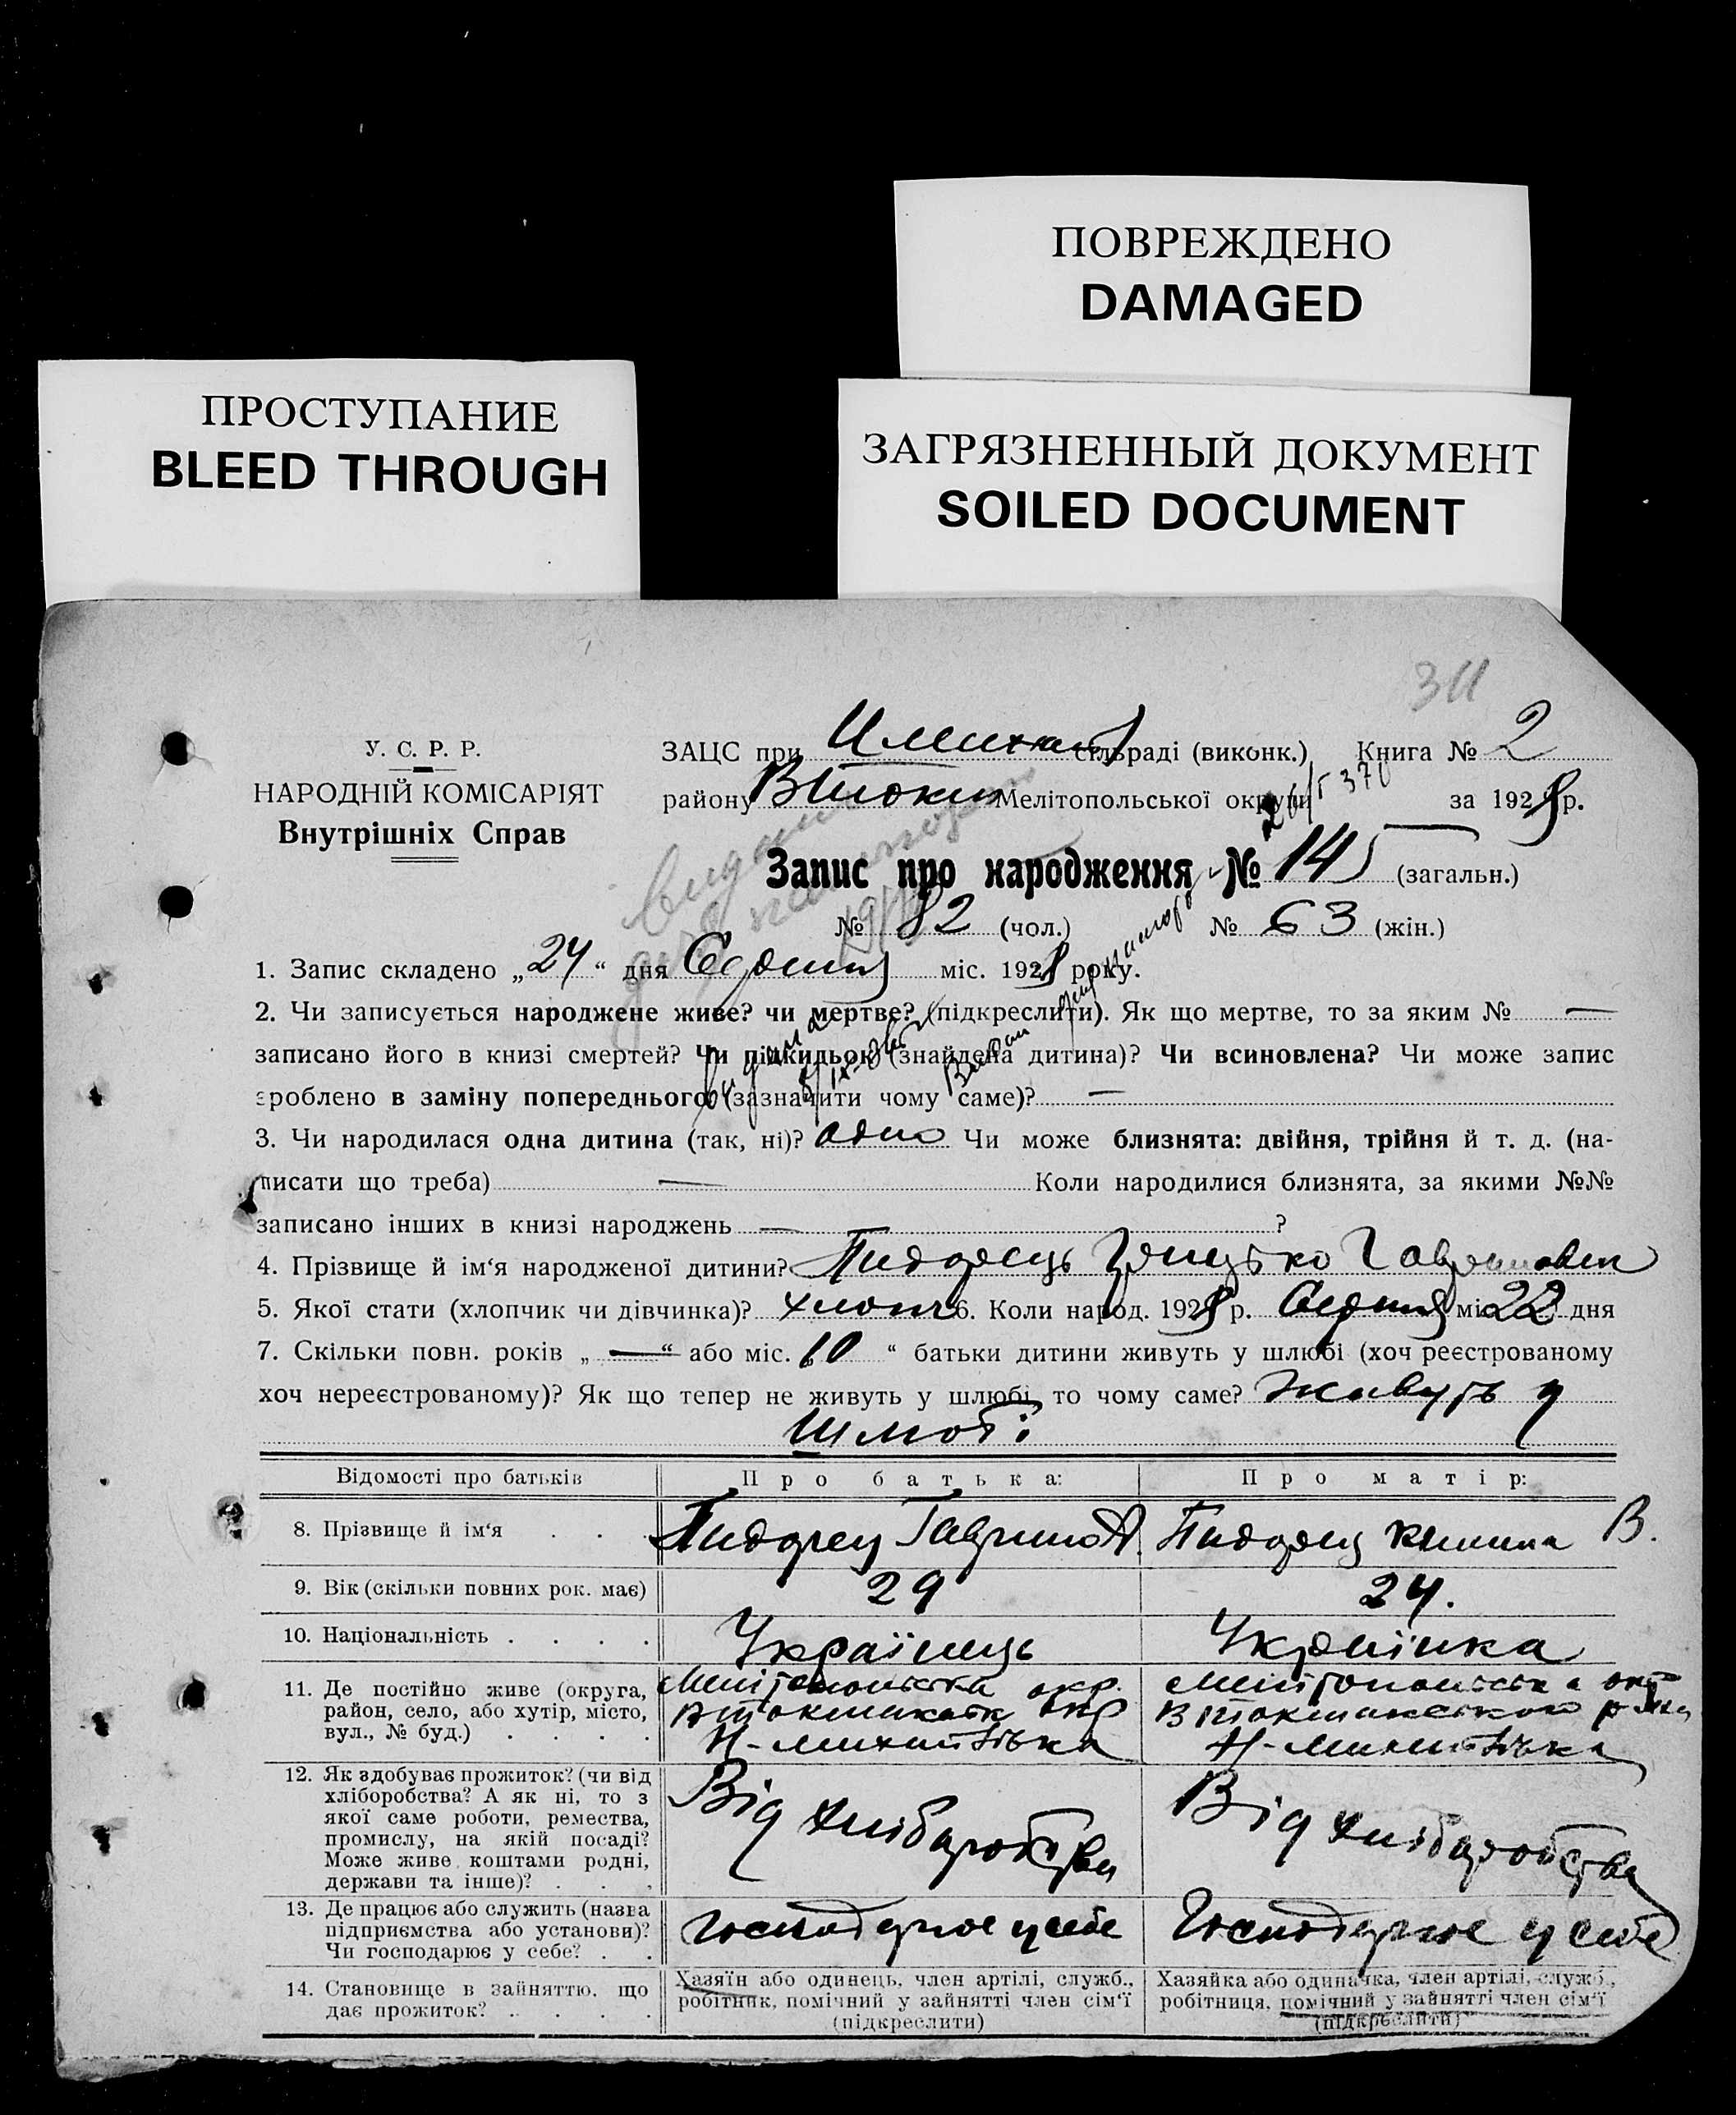 ПОВРЕЖДЕНО
DAMAGED
ПРОСТУПАНИЕ
BLEED THROUGH
ЗАГРЯЗНЕННЫЙ ДОКУМЕНТ
SOILED DOCUMENT
311
У. С. Р. Р.
НАРОДНІЙ КОМІСАРІЯТ
Внутрішніх Справ
ЗАЦС при сільраді (виконк.) Книга № 2
району Мелітопольської округи за 1928 р.
370
Запис про народження № 145 (загальн.)
№ 82 (чол.) № 63 (жін.)
1. Запис складено „24“ дня Серпня міс. 1928 року.
2. Чи записується народжене живе? чи мертве? (підкреслити). Як що мертве, то за яким № —
записано його в книзі смертей? Чи підкидьок (знайдена дитина)? Чи всиновлена? Чи може запис
зроблено в заміну попереднього (зазначити чому саме)? —
3. Чи народилася одна дитина (так, ні)? одна Чи може близнята: двійня, трійня й т. д. (на-
писати що треба) — Коли народилися близнята, за якими №№
записано інших в книзі народжень — ?
4. Прізвище й ім‘я народженої дитини?
5. Якої стати (хлопчик чи дівчинка)? хлопч 6. Коли народ. 1928 р. Серпня міс. 22 дня
7. Скільки повн. років „ — “ або міс. „10“ батьки дитини живуть у шлюбі (хоч реєстрованому
хоч нереєстрованому)? Як що тепер не живуть у шлюбі, то чому саме? Живуть у
шлюбі
Відомості про батьків Про батька: Про матір:
8. Прізвище й ім‘я . . .
9. Вік (скільки повних рок. має) 29 24.
10. Національність . . . . Українець Українка
11. Де постійно живе (округа,
район, село, або хутір, місто,
вул., № буд.) . . . .
Мелітопольська окр.
Н-Михайлівка
Мелітопольська окр
Н-Михайлівка
12. Як здобуває прожиток? (чи від
хліборобства? А як ні, то з
якої саме роботи, ремества,
промислу, на якій посаді?
Може живе коштами родні,
держави та інше)? . . .
Від хліборобства
Від хліборобства
13. Де працює або служить (назва
підприємства або установи)?
Чи господарює у себе? . .
Господарює у себе
Господарює у себе
14. Становище в зайняттю, що
дає прожиток? . . . .
Хазяїн або одинець, член артілі, служб.,
робітник, помічний у зайнятті член сім‘ї
(підкреслити)
Хазяйка або одиначка, член артілі, служб.,
робітниця, помічний у зайнятті член сім‘ї
(підкреслити)